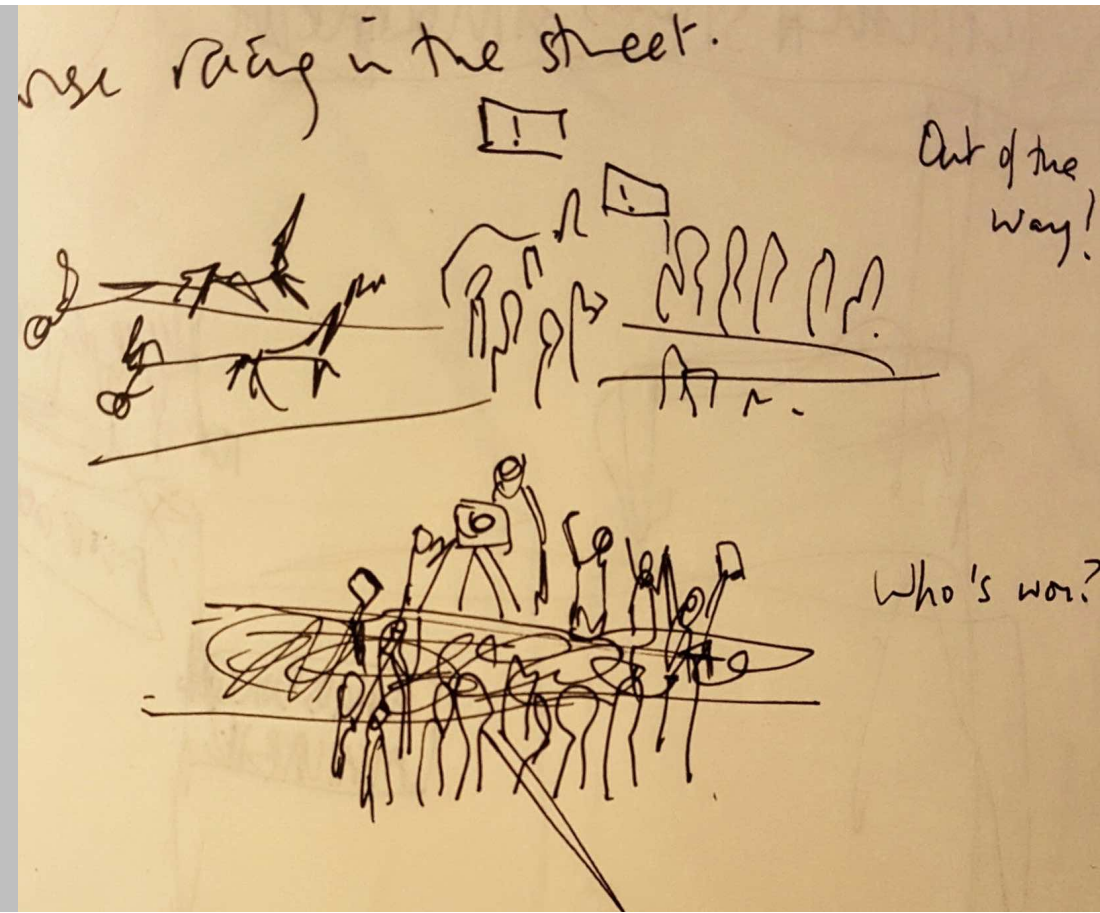 orse racing in the street.
!
!
Out of the
way!
Who's won?